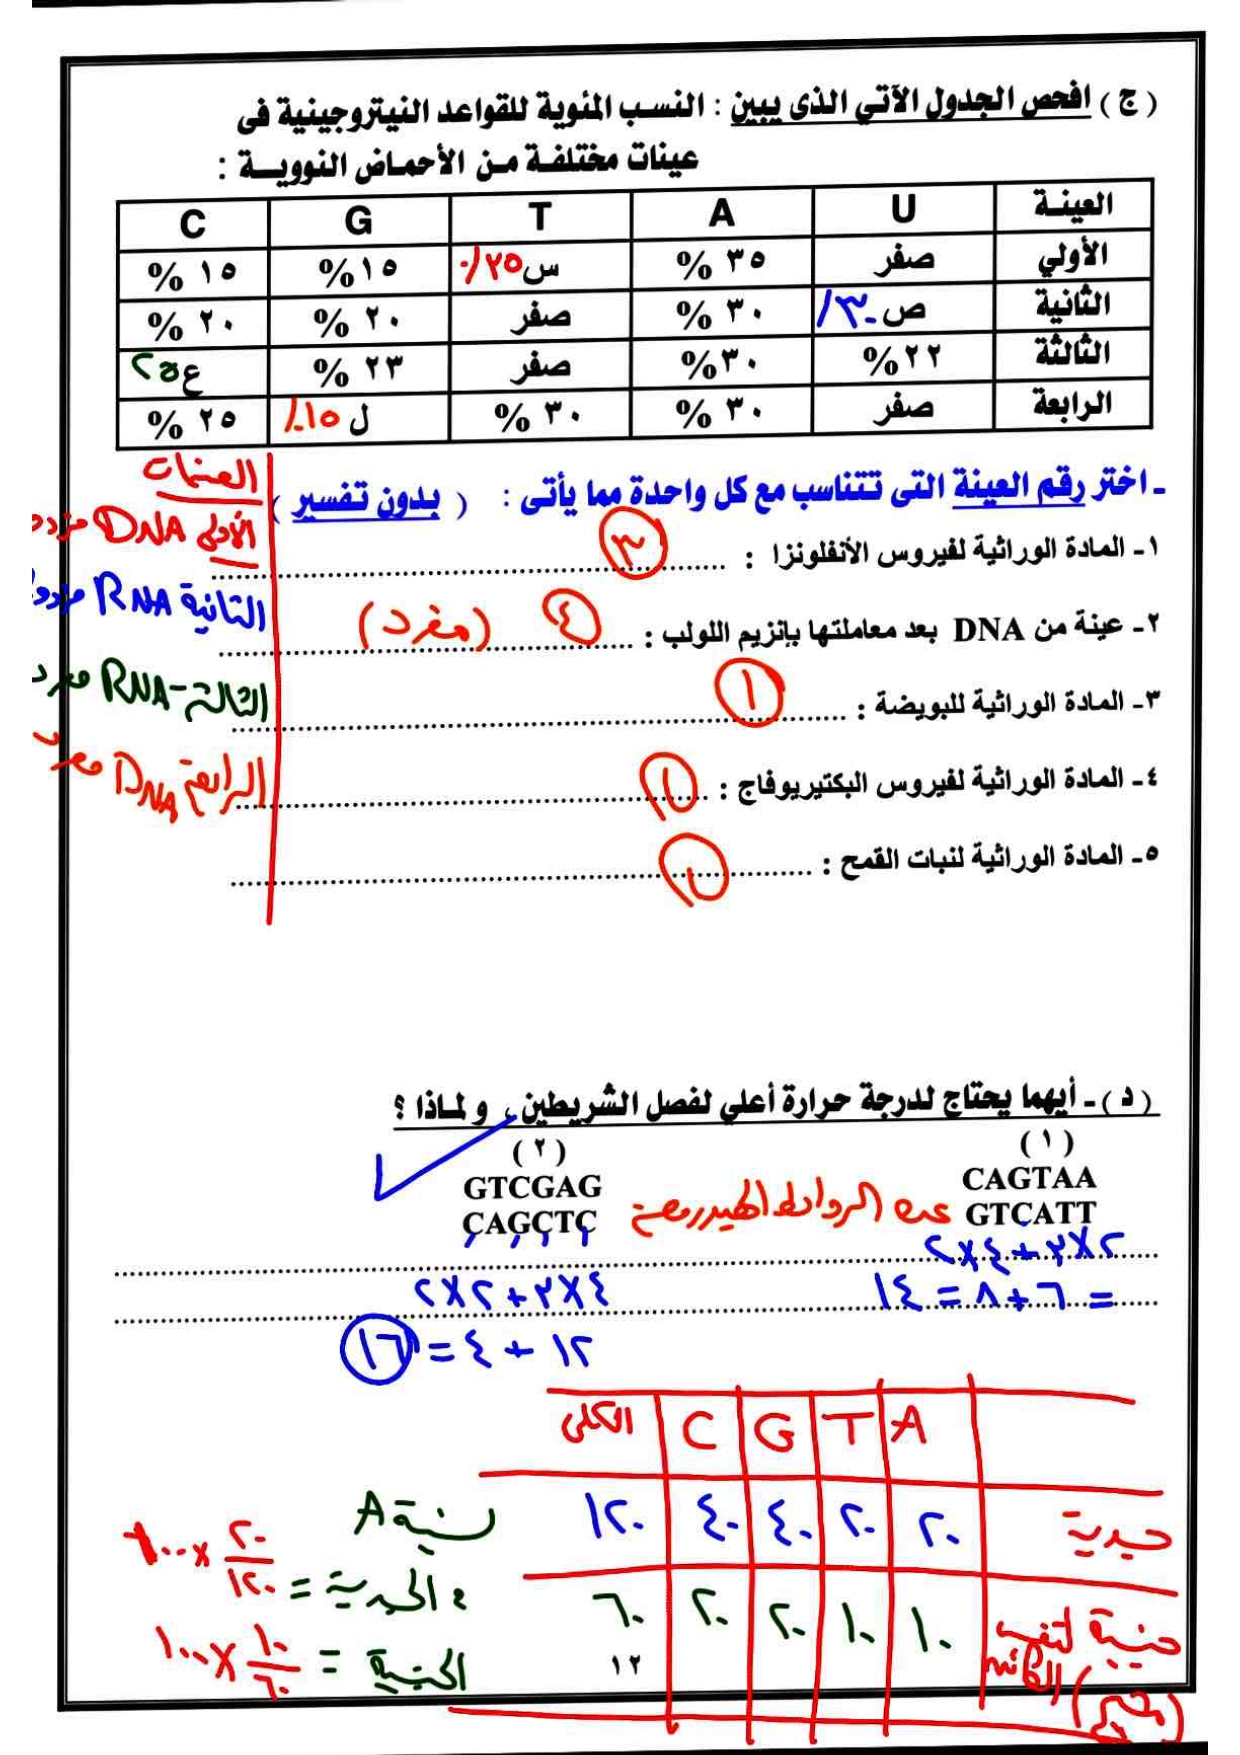 ( ج ) افحص الجدول الآتي الذى يبين : النسب المئوية للقواعد النيتروجينية فى
عينات مختلفة من الأحماض النووية :
العينة U A T G C
الأولي صفر ٣٥ % س ٣٥٪ ١٥% ١٥ %
الثانية ص ٣٠٪ ٣٠ % صفر ٢٠ % ٢٠ %
الثالثة ٢٢% ٣٠% صفر ٢٣ % ع ٢٥
الرابعة صفر ٣٠ % ٣٠ % ل ١٥٪ ٢٥ %
ـ اختر رقم العينة التى تتناسب مع كل واحدة مما يأتى : ( بدون تفسير )
العينات
١ـ المادة الوراثية لفيروس الأنفلونزا : ٣
الأولى DNA
٢ـ عينة من DNA بعد معاملتها بإنزيم اللولب : ٤ (مفرد)
الثانية RNA
٣ـ المادة الوراثية للبويضة : ١
الثالثة - RNA
٤ـ المادة الوراثية لفيروس البكتيريوفاج : ١
الرابعة DNA
٥ـ المادة الوراثية لنبات القمح : ١
( د ) ـ أيهما يحتاج لدرجة حرارة أعلي لفصل الشريطين ، و لماذا ؟
( ١ ) ( ٢ )
CAGTAA GTCGAG
GTCATT عدد الروابط الهيدروجينية CAGCTC
٢×٣+٤×٢
= ٦+٨ = ١٤ ٤×٣+٢×٢
١٢ + ٤ = ١٦
A T G C الكلى
جسدية ٢٠ ٢٠ ٤٠ ٤٠ ١٢٠
نسبة A
جنسية لنفس الكائن ١٠ ١٠ ٢٠ ٢٠ ٦٠
الجسدية = ٢٠/١٢٠ × ١٠٠
الجنسية = ١٠/٦٠ × ١٠٠
١٢